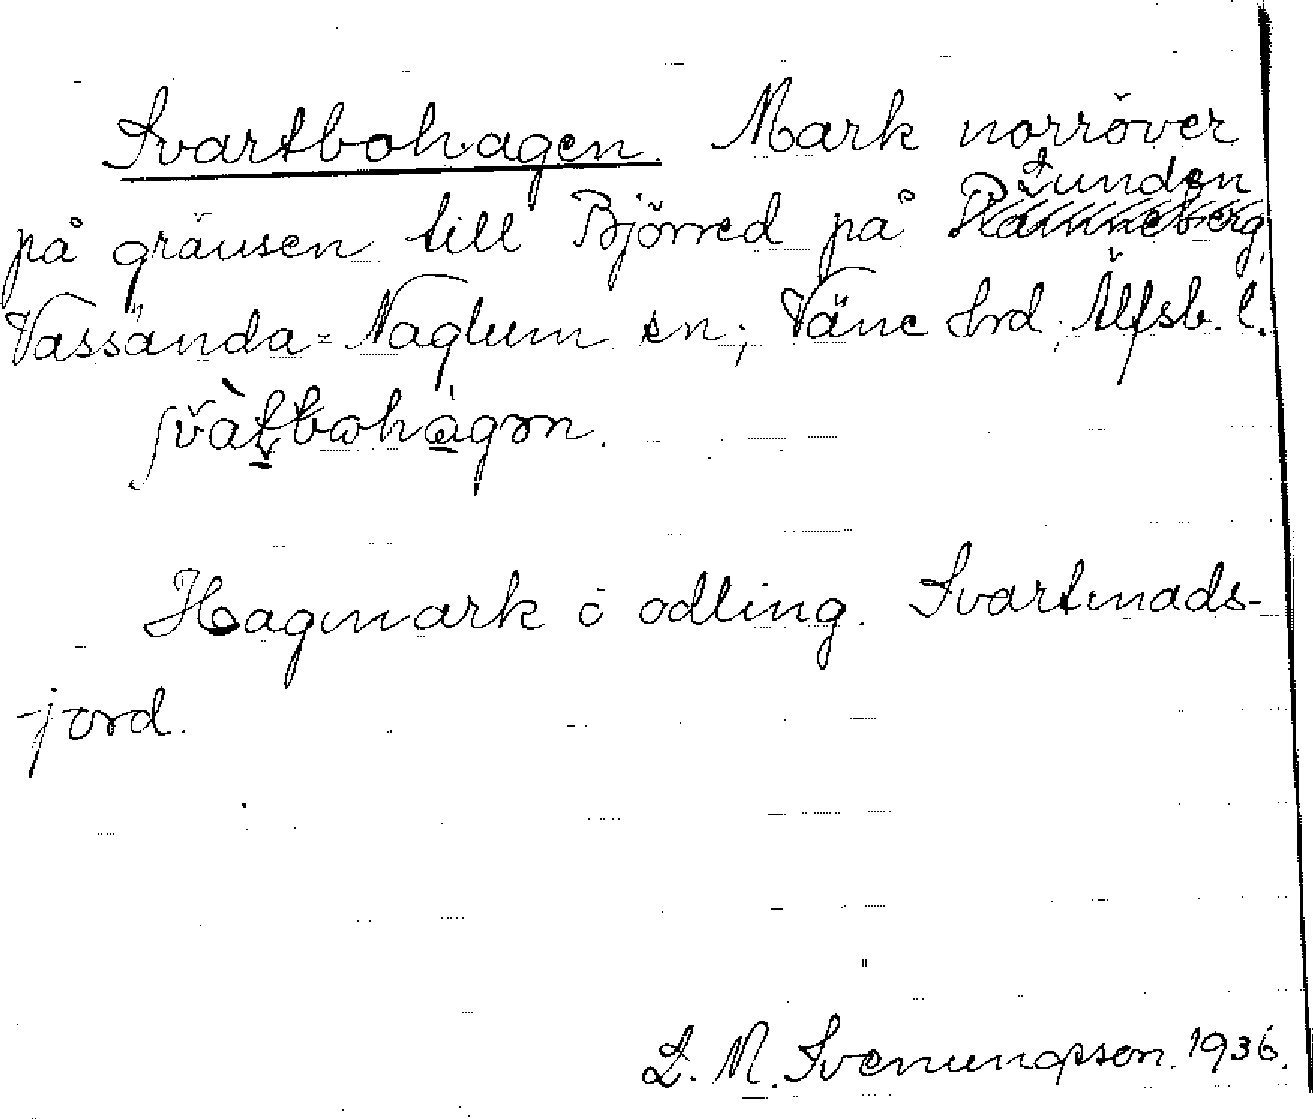 Svartbohagen. Mark norröver
på gränsen till Björred på Lunden
Vassända-Naglum sn; Väne hrd; Älfsb. l.
Hagmark o odling. Svartmads-
-jord.
L. M. Svenungsson. 1936.